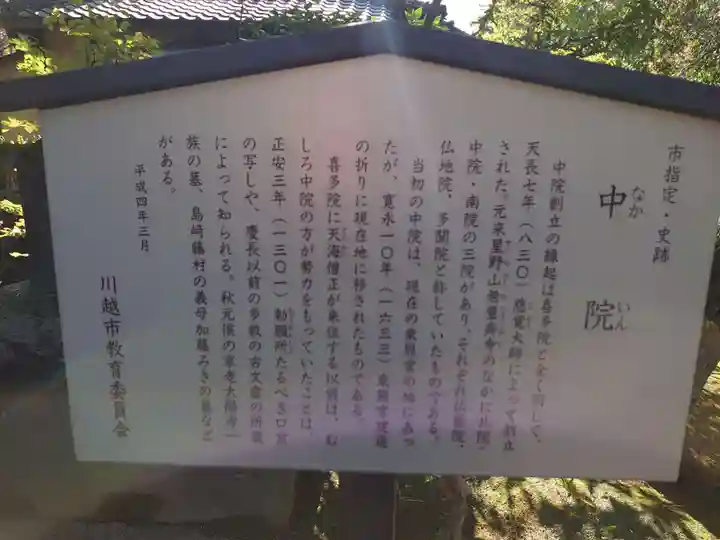 市指定・史跡
中院
なか いん
中院創立の縁起は喜多院と全く同じで、
天長七年（八三〇）慈覚大師によって創立
された。元来星野山無量寿寺のなかに北院・
中院・南院の三院があり、それぞれ仏蔵院・
仏地院、多聞院と称していたものである。
当初の中院は、現在の東照宮の地にあっ
たが、寛永一〇年（一六三三）東照宮建造
の折りに現在地に移されたものである。
喜多院に天海僧正が来住する以前は、む
しろ中院の方が勢力をもっていたことは、
正安三年（一三〇一）勅願所たるべき口宣
の写しや、慶長以前の多数の古文書の所蔵
によって知られる。秋元侯の家老太陽寺一
族の墓、島崎藤村の義母加藤みきの墓など
がある。
平成四年三月
川越市教育委員会